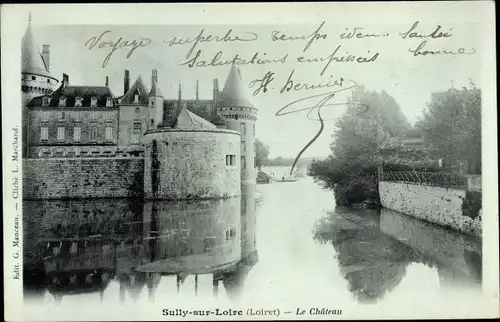 Voyage superbe. Temps idem. Santé bonne
Salutations empressées
H. Bernier
Edit. G. Manceau. — Cliché L. Marchand.
Sully-sur-Loire (Loiret) — Le Château